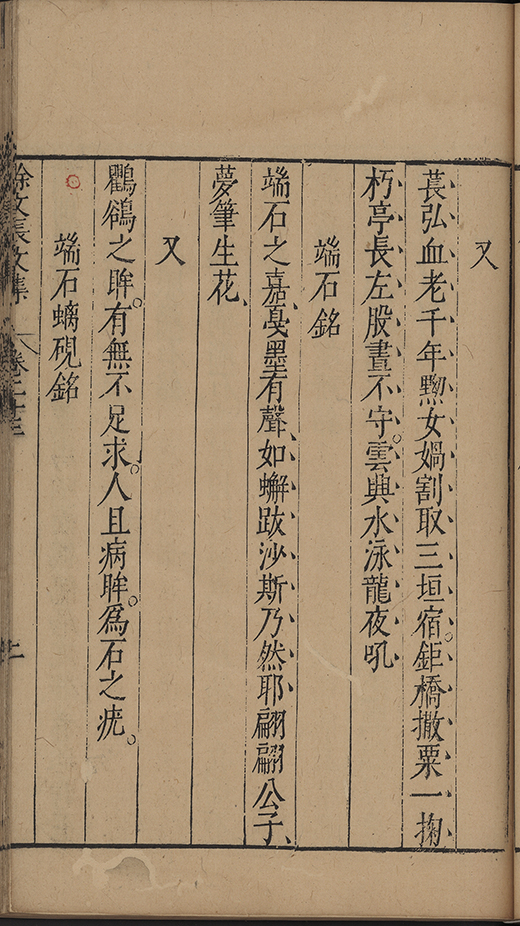 又
萇弘血老千年黟女媧割取三垣宿。鉅橋撒粟一掬
朽亭長左股晝不守。雲興水泳龍夜吼
端石銘
端石之嘉、戛墨有聲、如蠏跋沙斯乃然耶翩翩公子、
夢筆生花、
又
鸜鵒之眸。有無不足求。人且病眸。爲石之疣。
端石螭硯銘
徐文長文集 卷二十二